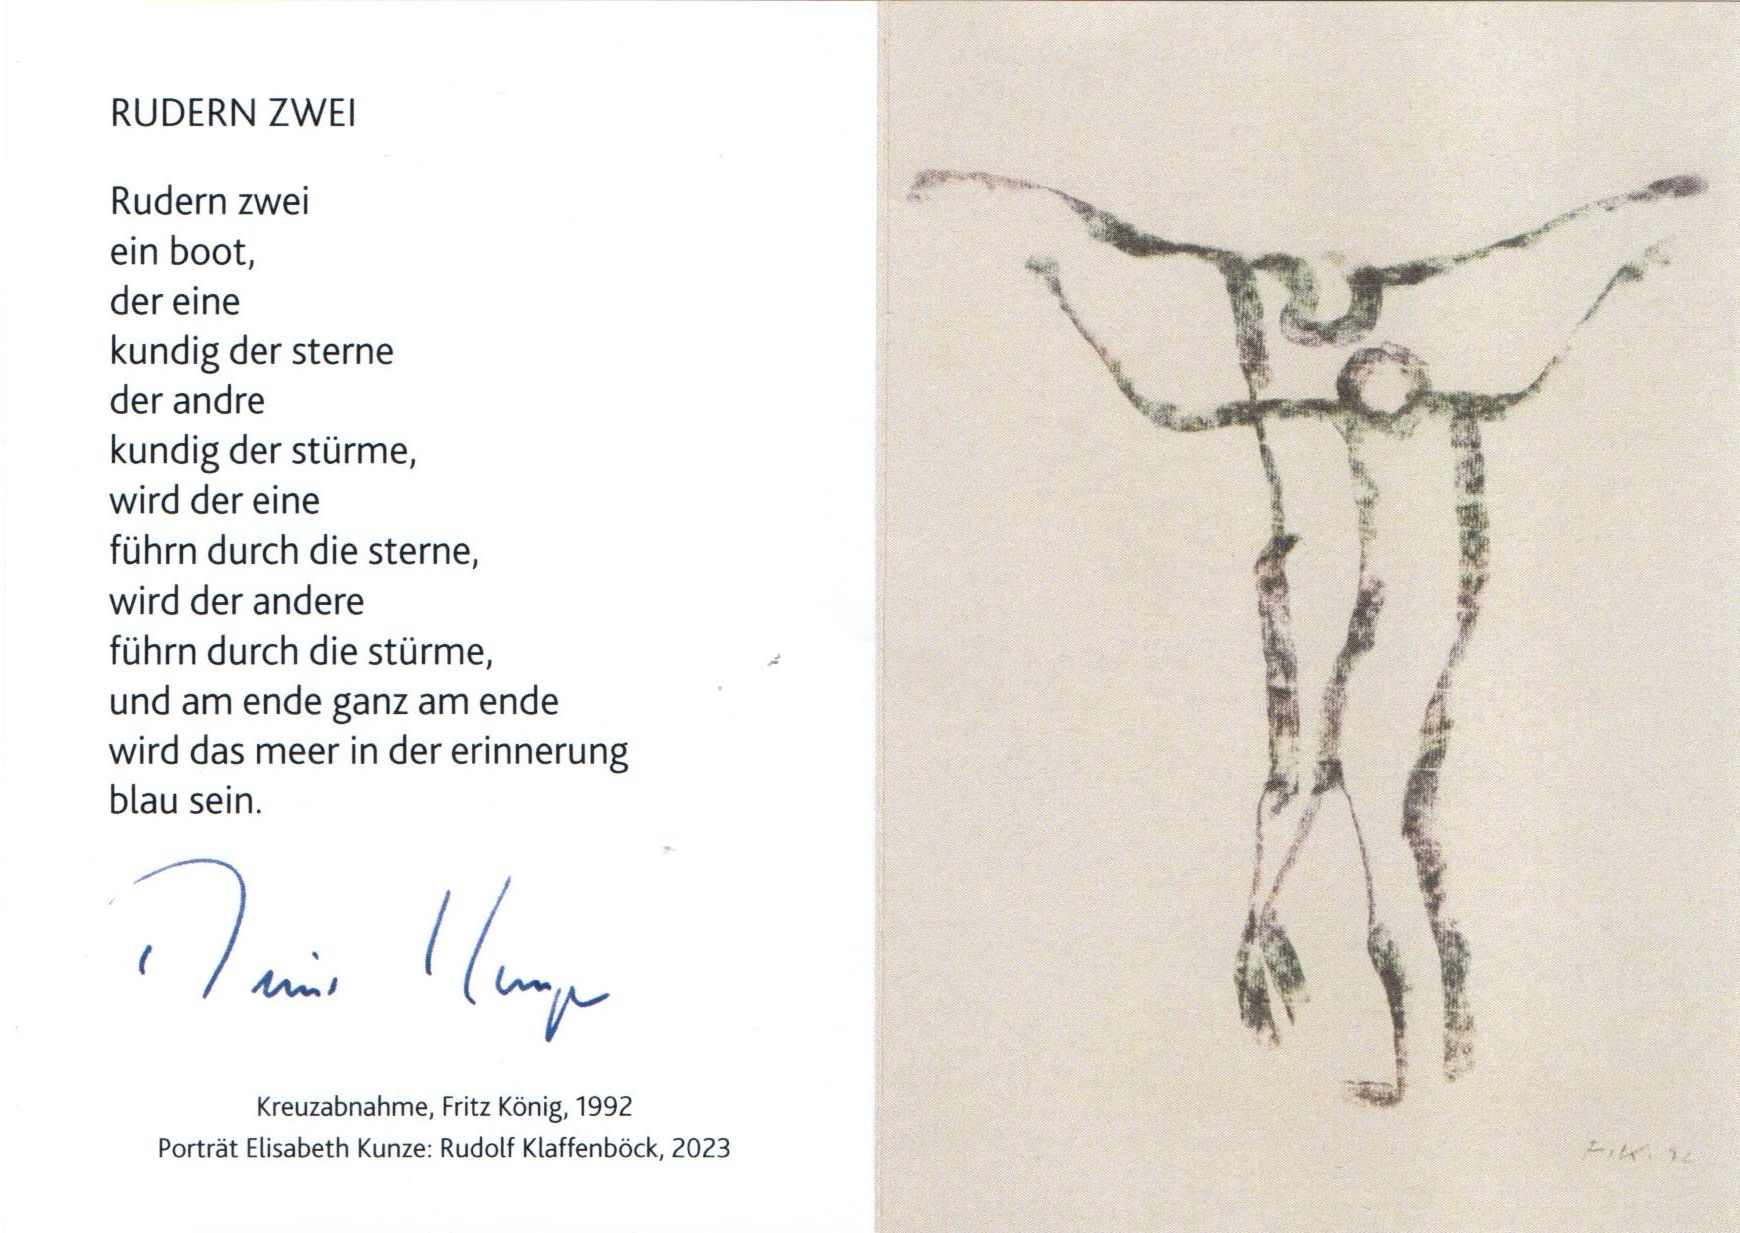 RUDERN ZWEI
Rudern zwei
ein boot,
der eine
kundig der sterne
der andre
kundig der stürme,
wird der eine
führn durch die sterne,
wird der andere
führn durch die stürme,
und am ende ganz am ende
wird das meer in der erinnerung
blau sein.
Kunze
Kreuzabnahme, Fritz König, 1992
Porträt Elisabeth Kunze: Rudolf Klaffenböck, 2023
F.K. 92